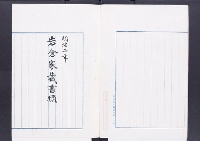 明治二年
岩倉家蔵書類